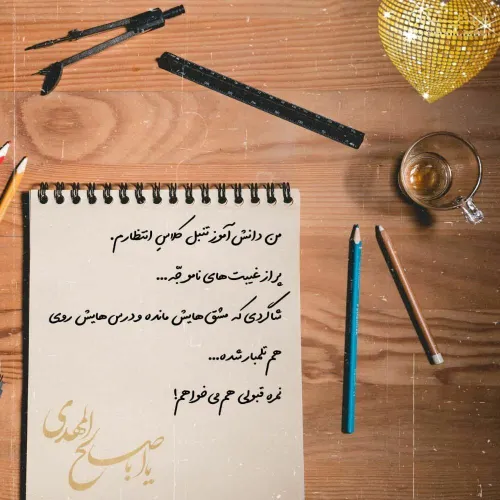 من دانش آموز تنبل کلاسِ انتظارم.
پر از غیبت های ناموجّه...
شاگردی که مشق هایش مانده و درس هایش روی
هم تلمبار شده...
نمره قبولی هم می خواهم!
یا اباصالح المهدی